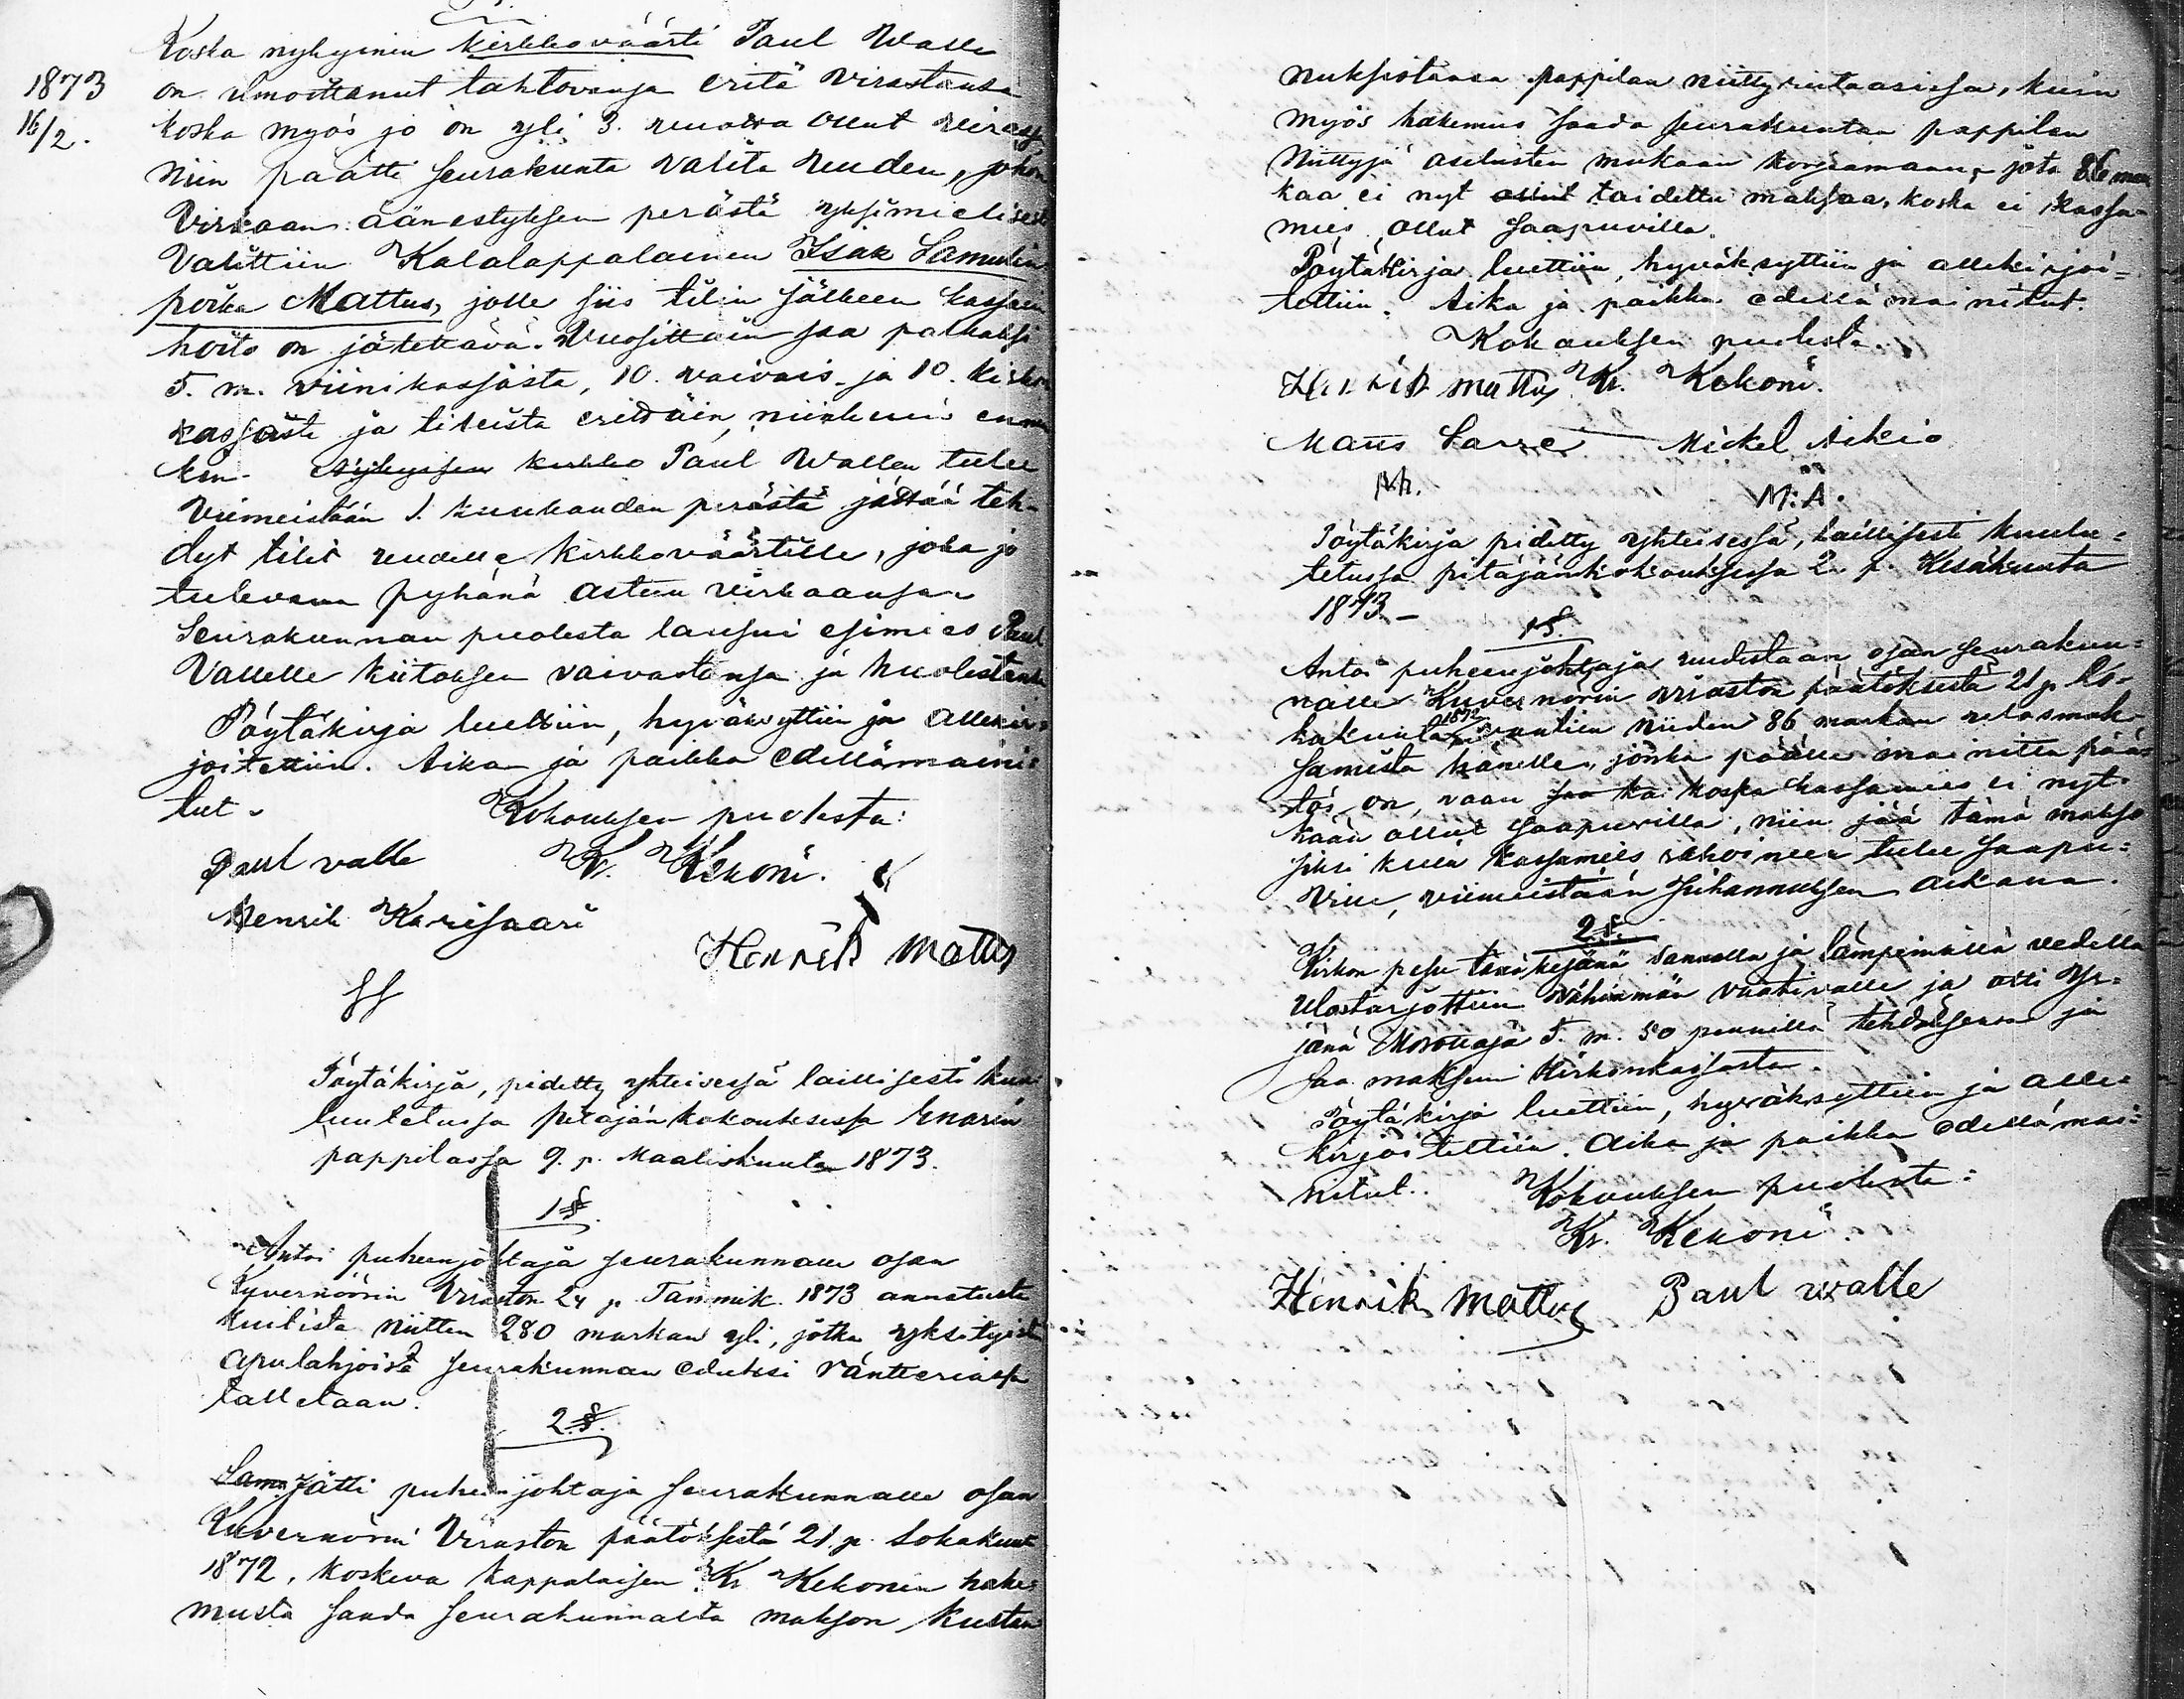 Koska nykyinen kirkkoväärti Paul Walle
1873 on ilmoittanut tahtovansa eritä virastansa
16/2. koska myös jo on yli 3. vuotta ollut
niin päätti seurakunta valita uuden, johon
virkaan äänestyksen perästä yksimielisesti
valittiin Kalalappalainen Isak Samulin
poika Mattus, jolle siis tilin jälkeen kassan
hoito on jätettävä. Vuosittain saa palkaksi
5. m. viinikassasta, 10. vaivais- ja 10. kirkon
kassasta ja tileistä erittäin, niinkuin ennen
kin. Nykyisen kirkko Paul Wallen tulee
viimeistään 1. kuukauden perästä jättää teh-
dyt tilit uudelle kirkkoväärtille, joka jo
tulevana pyhänä astuu virkaansa.
Seurakunnan puolesta lausui esimies Paul
Vallelle kiitoksen vaivastansa ja huolestansa
Pöytäkirja luettiin, hyväksyttiin ja allekir-
joitettiin. Aika ja paikka edellämaini-
tut. Kokouksen puolesta:
Paul valle Kr. Kekoni.
Henrik Karisaari
Henrik Mattus
Pöytäkirja, pidetty yhteisessä laillisesti kuu-
luutetussa pitäjänkokouksessa Enarin
pappilassa 9. p. Maaliskuuta 1873.
1 §.
Antoi puheenjohtaja seurakunnalle osan
Kuvernöörin Viraston 24 p. Tammik. 1873 annetusta
kuitista niitten 280 markan yli, jotka yksityisistä
apulahjoista seurakunnan eduksi räntteriassa
talletaan.
2 §.
Sam Jätti puheenjohtaja seurakunnalle osan
Kuvernörin Viraston päätöksestä 21 p. Lokakuut
1872, koskeva kappalaisen Kr Kekonin hake-
musta saada seurakunnalta makson kustan
nuksistansa pappilan niittyriitaasiassa, kuin
myös hakemus saada seurakuntan pappilan
niittyjä asetusten mukaan korjaamaan, jota 86 mark
kaa ei nyt taidettu maksaa, koska ei kassa-
mies ollut saapuvilla.
Pöytäkirja luettiin, hyväksyttiin ja allekirjoi-
tettiin. Aika ja paikka edellä mainitut.
Kokouksen puolesta.
Henrik mattus Kr. Kekoni.
Mans Sarre Mickel Aikio
M:A.
Pöytäkirja pidetty yhteisessä, laillisesti kuulu-
tetussa pitäjänkokouksessa 2. p. Kesäkuuta
1873.-
1 §.
Antoi puheenjohtaja uudistaan osan seurakun-
nalle Kuvernörin viraston päätöksestä 21 p. Lo-
kakuuta 1872 niiden 86 markan ulosmak-
samista hänelle, jonka päälle mainittu pää-
tös on, vaan koska kassamies ei nyt-
kään ollut saapuvilla, niin jää tämä makso
siksi kuin kassamies rahoineen tulee saapu-
ville, viimeistään Juhannuksen aikana.
2 §.
Kirkon pesu sannalla ja lämpimällä vedellä
ulostarjottiin vähimmän vaativalle ja otti Yr-
jänä Morottaja 5. m. 50 pennillä tehdäksensä ja
saa maksun Kirkonkassasta.
Pöytäkirja luettiin, hyväksyttiin ja alle-
kirjoitettiin. Aika ja paikka edellämai-
nitut. Kokouksen puolesta:
Kr. Kekoni.
Henrik Mattus Paul walle